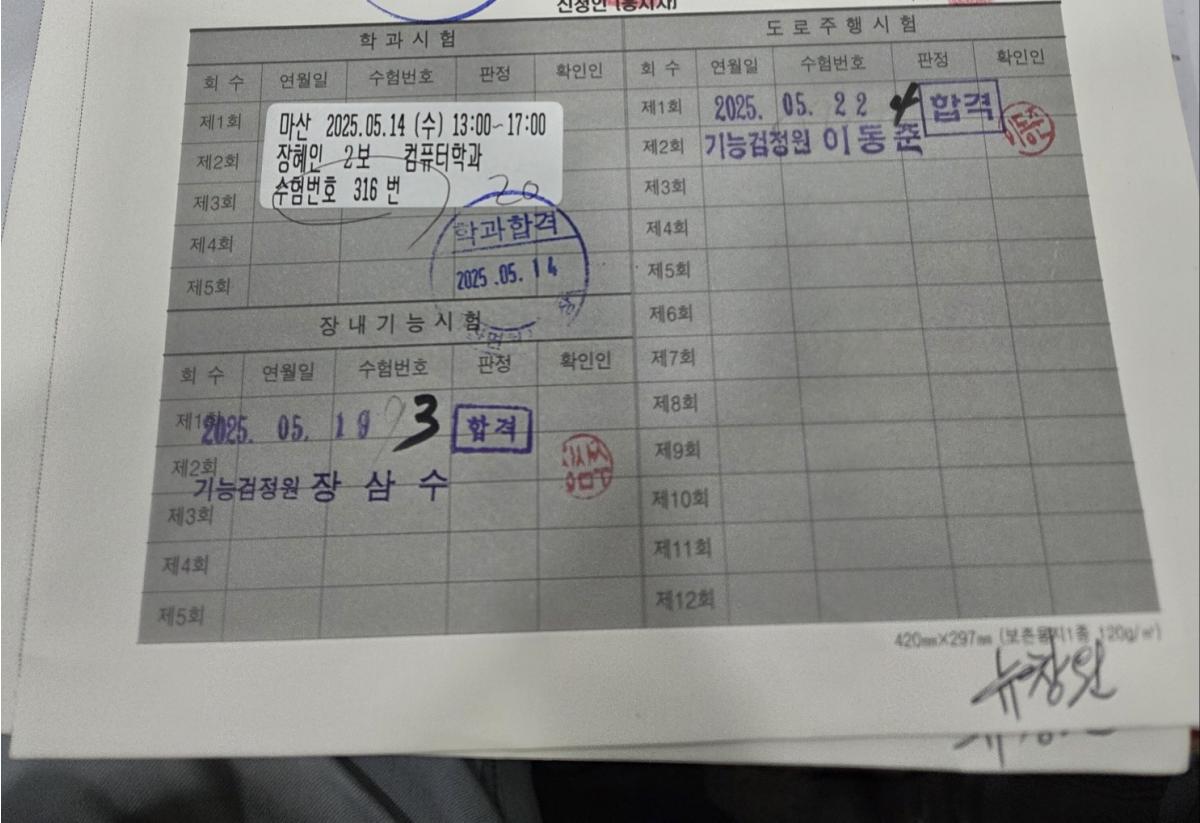 신청인 (응시자)
학과시험
회 수 연월일 수험번호 판정 확인인
제1회
제2회
제3회
제4회
제5회
마산 2025.05.14 (수) 13:00~17:00
장혜인 2보 컴퓨터학과
수험번호 316 번
20
학과합격
2025.05.14
장내기능시험
회 수 연월일 수험번호 판정 확인인
제1회 2025. 05. 19 3 합격
제2회
기능검정원 장 삼 수
제3회
제4회
제5회
도로주행시험
회 수 연월일 수험번호 판정 확인인
제1회 2025. 05. 22 4 합격
제2회 기능검정원 이동준
제3회
제4회
제5회
제6회
제7회
제8회
제9회
제10회
제11회
제12회
420㎜×297㎜ (보존용지1종 120g/㎡)
뉴창원